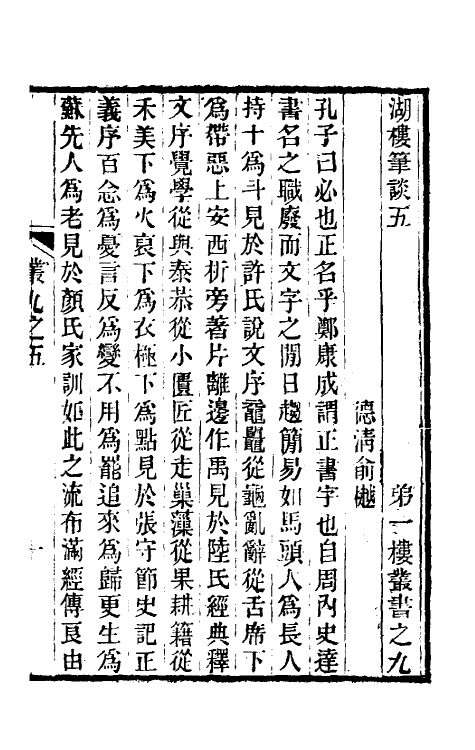 湖樓筆談五　第一樓叢書之九
德淸俞樾
孔子曰必也正名乎鄭康成謂正書字也自周內史達
書名之職廢而文字之閒日趨簡易如馬頭人爲長人
持十爲斗見於許氏說文序黿鼉從龜亂辭從舌席下
爲帶惡上安西析旁著片離邊作禹見於陸氏經典釋
文序覺學從與泰恭從小匱匠從走巢藻從果耕籍從
禾美下爲火哀下爲衣極下爲點見於張守節史記正
義序百念爲憂言反爲變不用爲罷追來爲歸更生爲
蘇先人爲老見於顏氏家訓如此之流布滿經傳良由
叢九之五
一